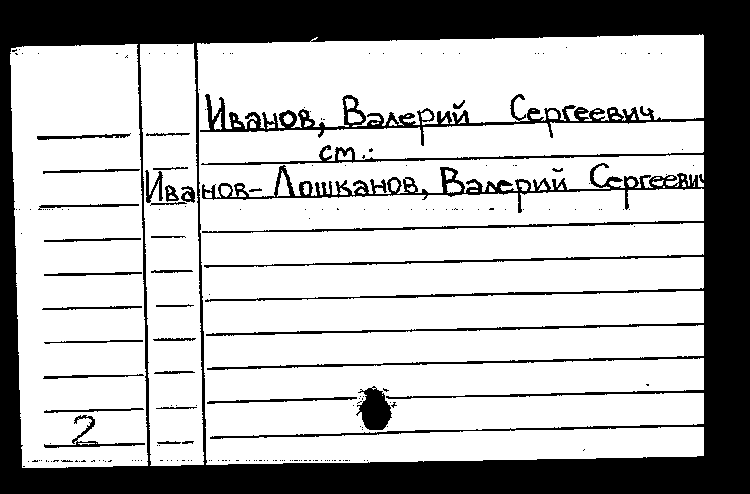 Иванов, Валерий Сергеевич.
см.:
Иванов-Лошканов, Валерий Сергеевич
2